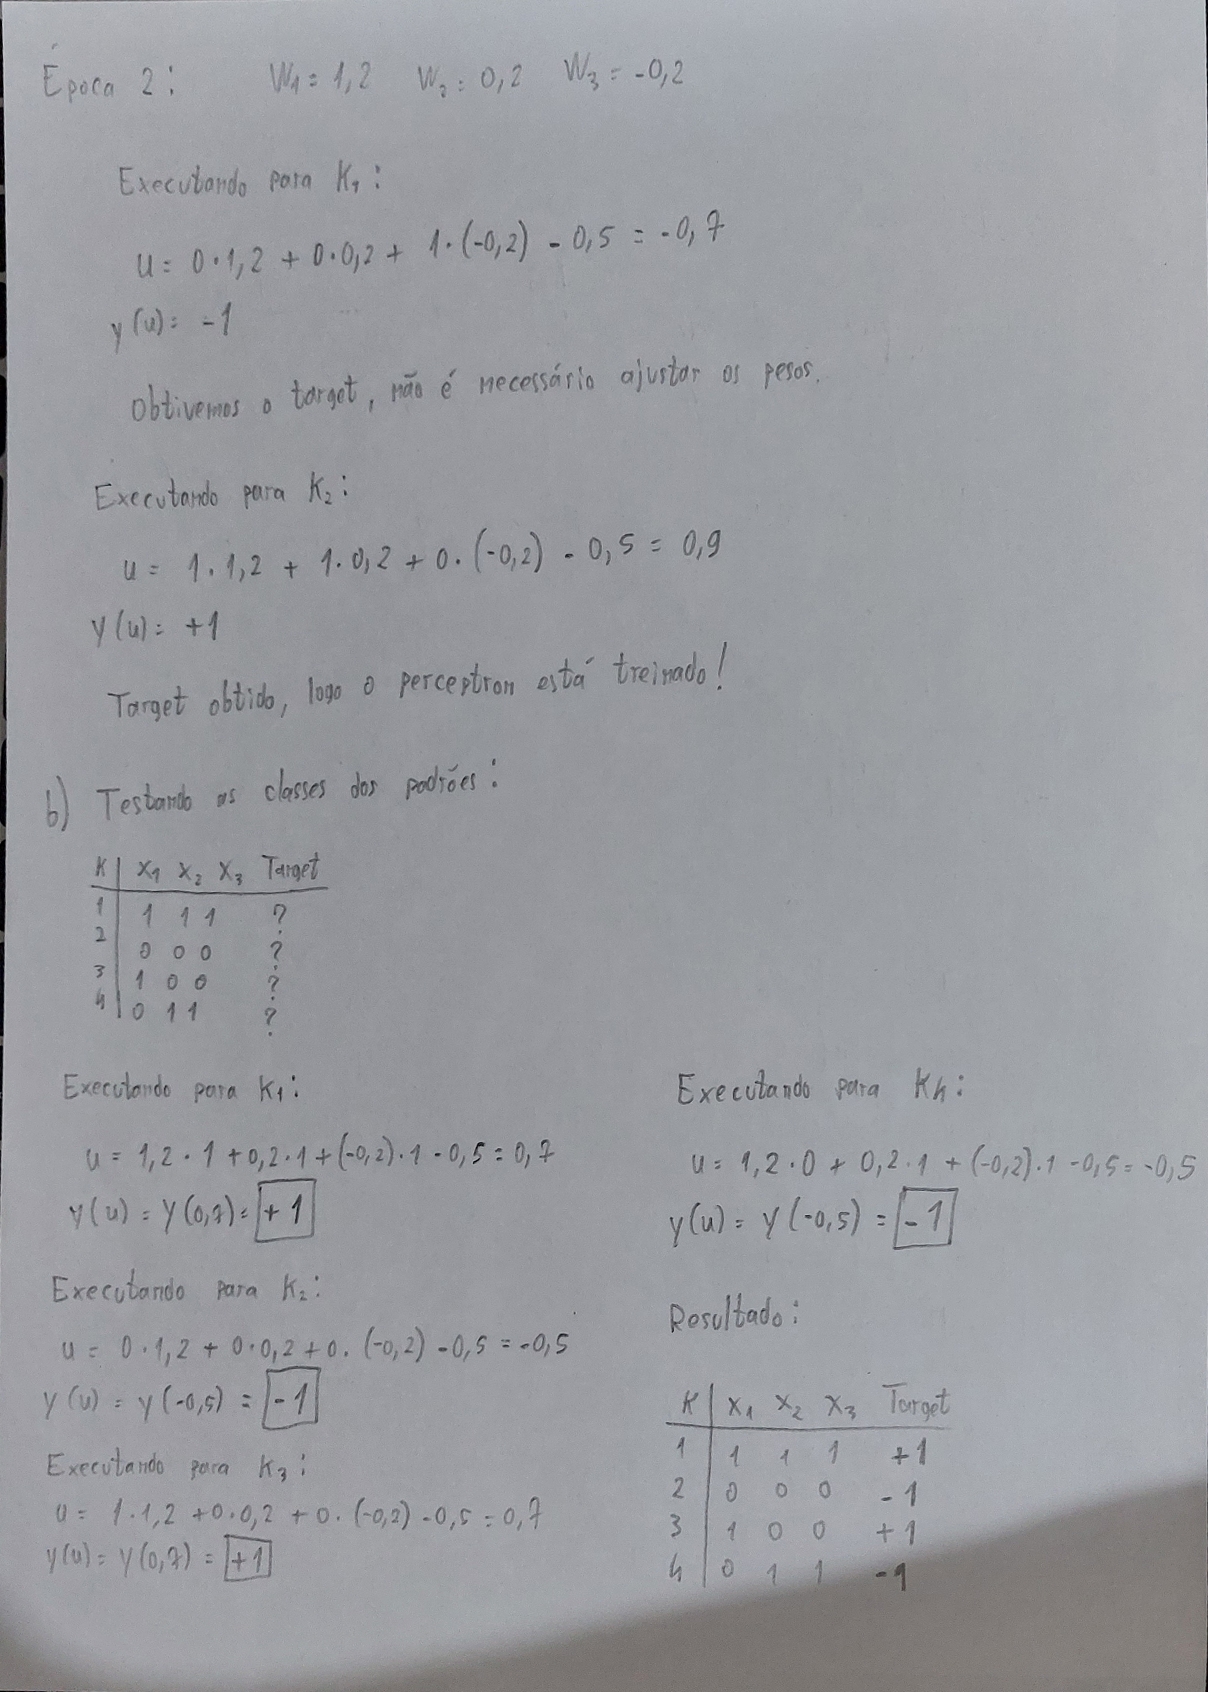 Época 2: W₁ = 1,2 W₂ = 0,2 W₃ = -0,2
Executando para K₁:
u = 0·1,2 + 0·0,2 + 1·(-0,2) - 0,5 = -0,7
y(u) = -1
Obtivemos o target, não é necessário ajustar os pesos.
Executando para K₂:
u = 1·1,2 + 1·0,2 + 0·(-0,2) - 0,5 = 0,9
y(u) = +1
Target obtido, logo o perceptron está treinado!
b) Testando as classes dos padrões:
K | X₁ X₂ X₃ Target
1 | 1 1 1 ?
2 | 0 0 0 ?
3 | 1 0 0 ?
4 | 0 1 1 ?
Executando para K₁:
u = 1,2·1 + 0,2·1 + (-0,2)·1 - 0,5 = 0,7
y(u) = y(0,7) = +1
Executando para K₂:
u = 0·1,2 + 0·0,2 + 0·(-0,2) - 0,5 = -0,5
y(u) = y(-0,5) = -1
Executando para K₃:
u = 1·1,2 + 0·0,2 + 0·(-0,2) - 0,5 = 0,7
y(u) = y(0,7) = +1
Executando para K₄:
u = 1,2·0 + 0,2·1 + (-0,2)·1 - 0,5 = -0,5
y(u) = y(-0,5) = -1
Resultado:
K | X₁ X₂ X₃ Target
1 | 1 1 1 +1
2 | 0 0 0 -1
3 | 1 0 0 +1
4 | 0 1 1 -1